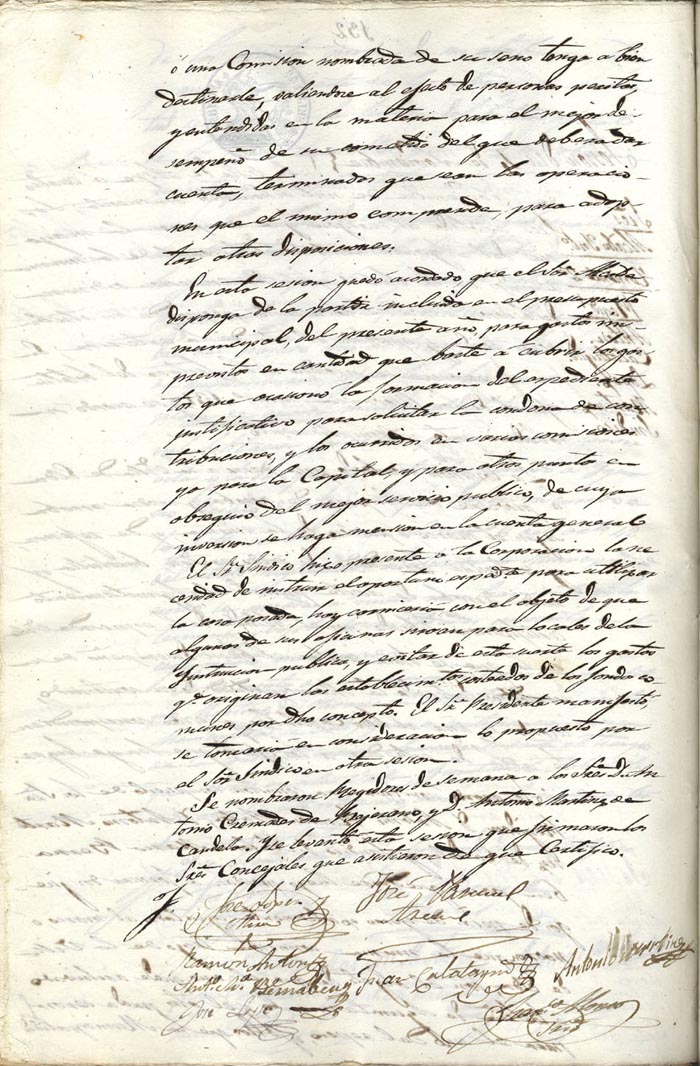 ó una Comision nombrada de su seno tenga a bien
destinarle, valiendose al efecto de personas peritas,
y entendidas en la materia para el mejor de-
sempeño de su cometido del que deberá dar
cuenta, terminadas que sean las operacio-
nes que el mismo comprende, para adop-
tar otras disposiciones.
En esta sesion quedó acordado que el Sor. Alcalde
disponga de la partida incluida en el presupuesto
municipal, del presente año, para gastos im-
previstos en cantidad que baste á cubrir los gas-
tos que ocasionó la formacion del expediente
justificativo para solicitar la condona de con-
tribuciones, y los ocurridos en varias comisiones
ya para la Capital, y para otros puntos en
obsequio del mejor servicio publico, de cuya
inversion se haga mension en la cuenta general
El Sr. Sindico hizo presente a la Corporacion la ne-
cesidad de instruir el oportuno espdte. para utilizar
la casa posada, hoy carniceria con el objeto de que
algunas de sus oficinas sirvan para locales de la
Ynstruccion publica, y evitar de esta suerte los gastos
qe. originan los establecimtos. costeados de los fondos co-
munes por dho concepto. El Sr. Presidente manifestó,
se tomaria en consideracion lo propuesto por
el Sor. Sindico en otra sesion.
Se nombraron Regidores de semana a los Sres. D. An-
tonio Cremades de, y D. Antonio Martinez de
Candela. Y se levantó esta sesion que firmaron los
Sres. Concejales que asistieron de que Certifico.
José Pascual
Ramon Antón
Bernabeu
Juan Calatayud
Antonio Martinez
José
Alonso
Srio
132